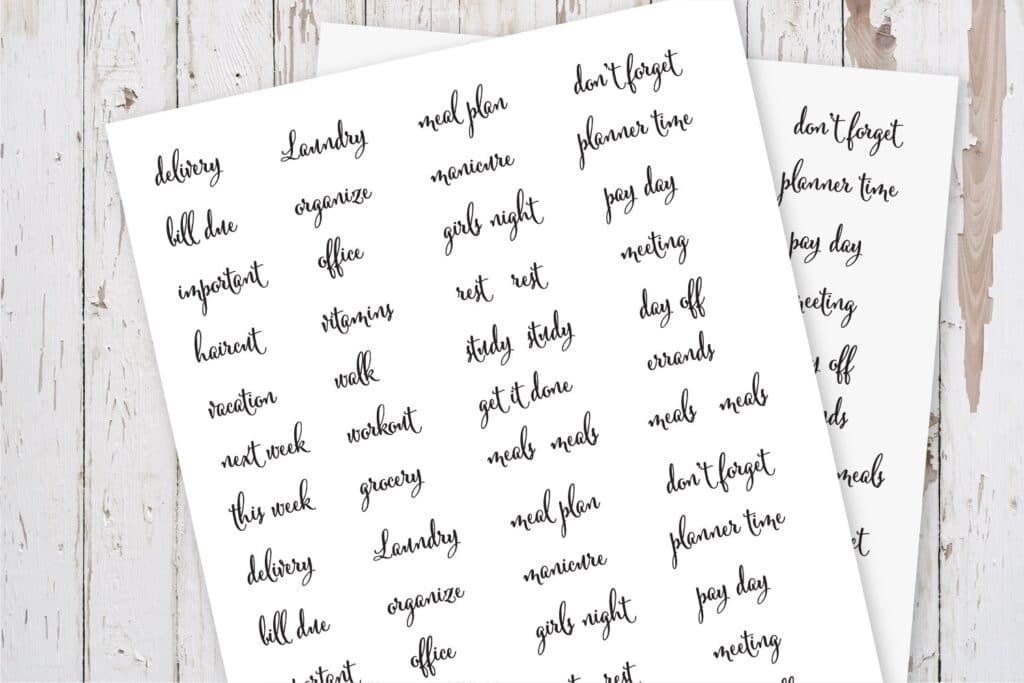 delivery
bill due
important
haircut
vacation
next week
this week
delivery
bill due
important
Laundry
organize
office
vitamins
walk
workout
grocery
Laundry
organize
office
meal plan
manicure
girls night
rest rest
study study
get it done
meals meals
meal plan
manicure
girls night
rest
don't forget
planner time
pay day
meeting
day off
errands
meals meals
don't forget
planner time
pay day
meeting
don't forget
planner time
pay day
meeting
off
meals